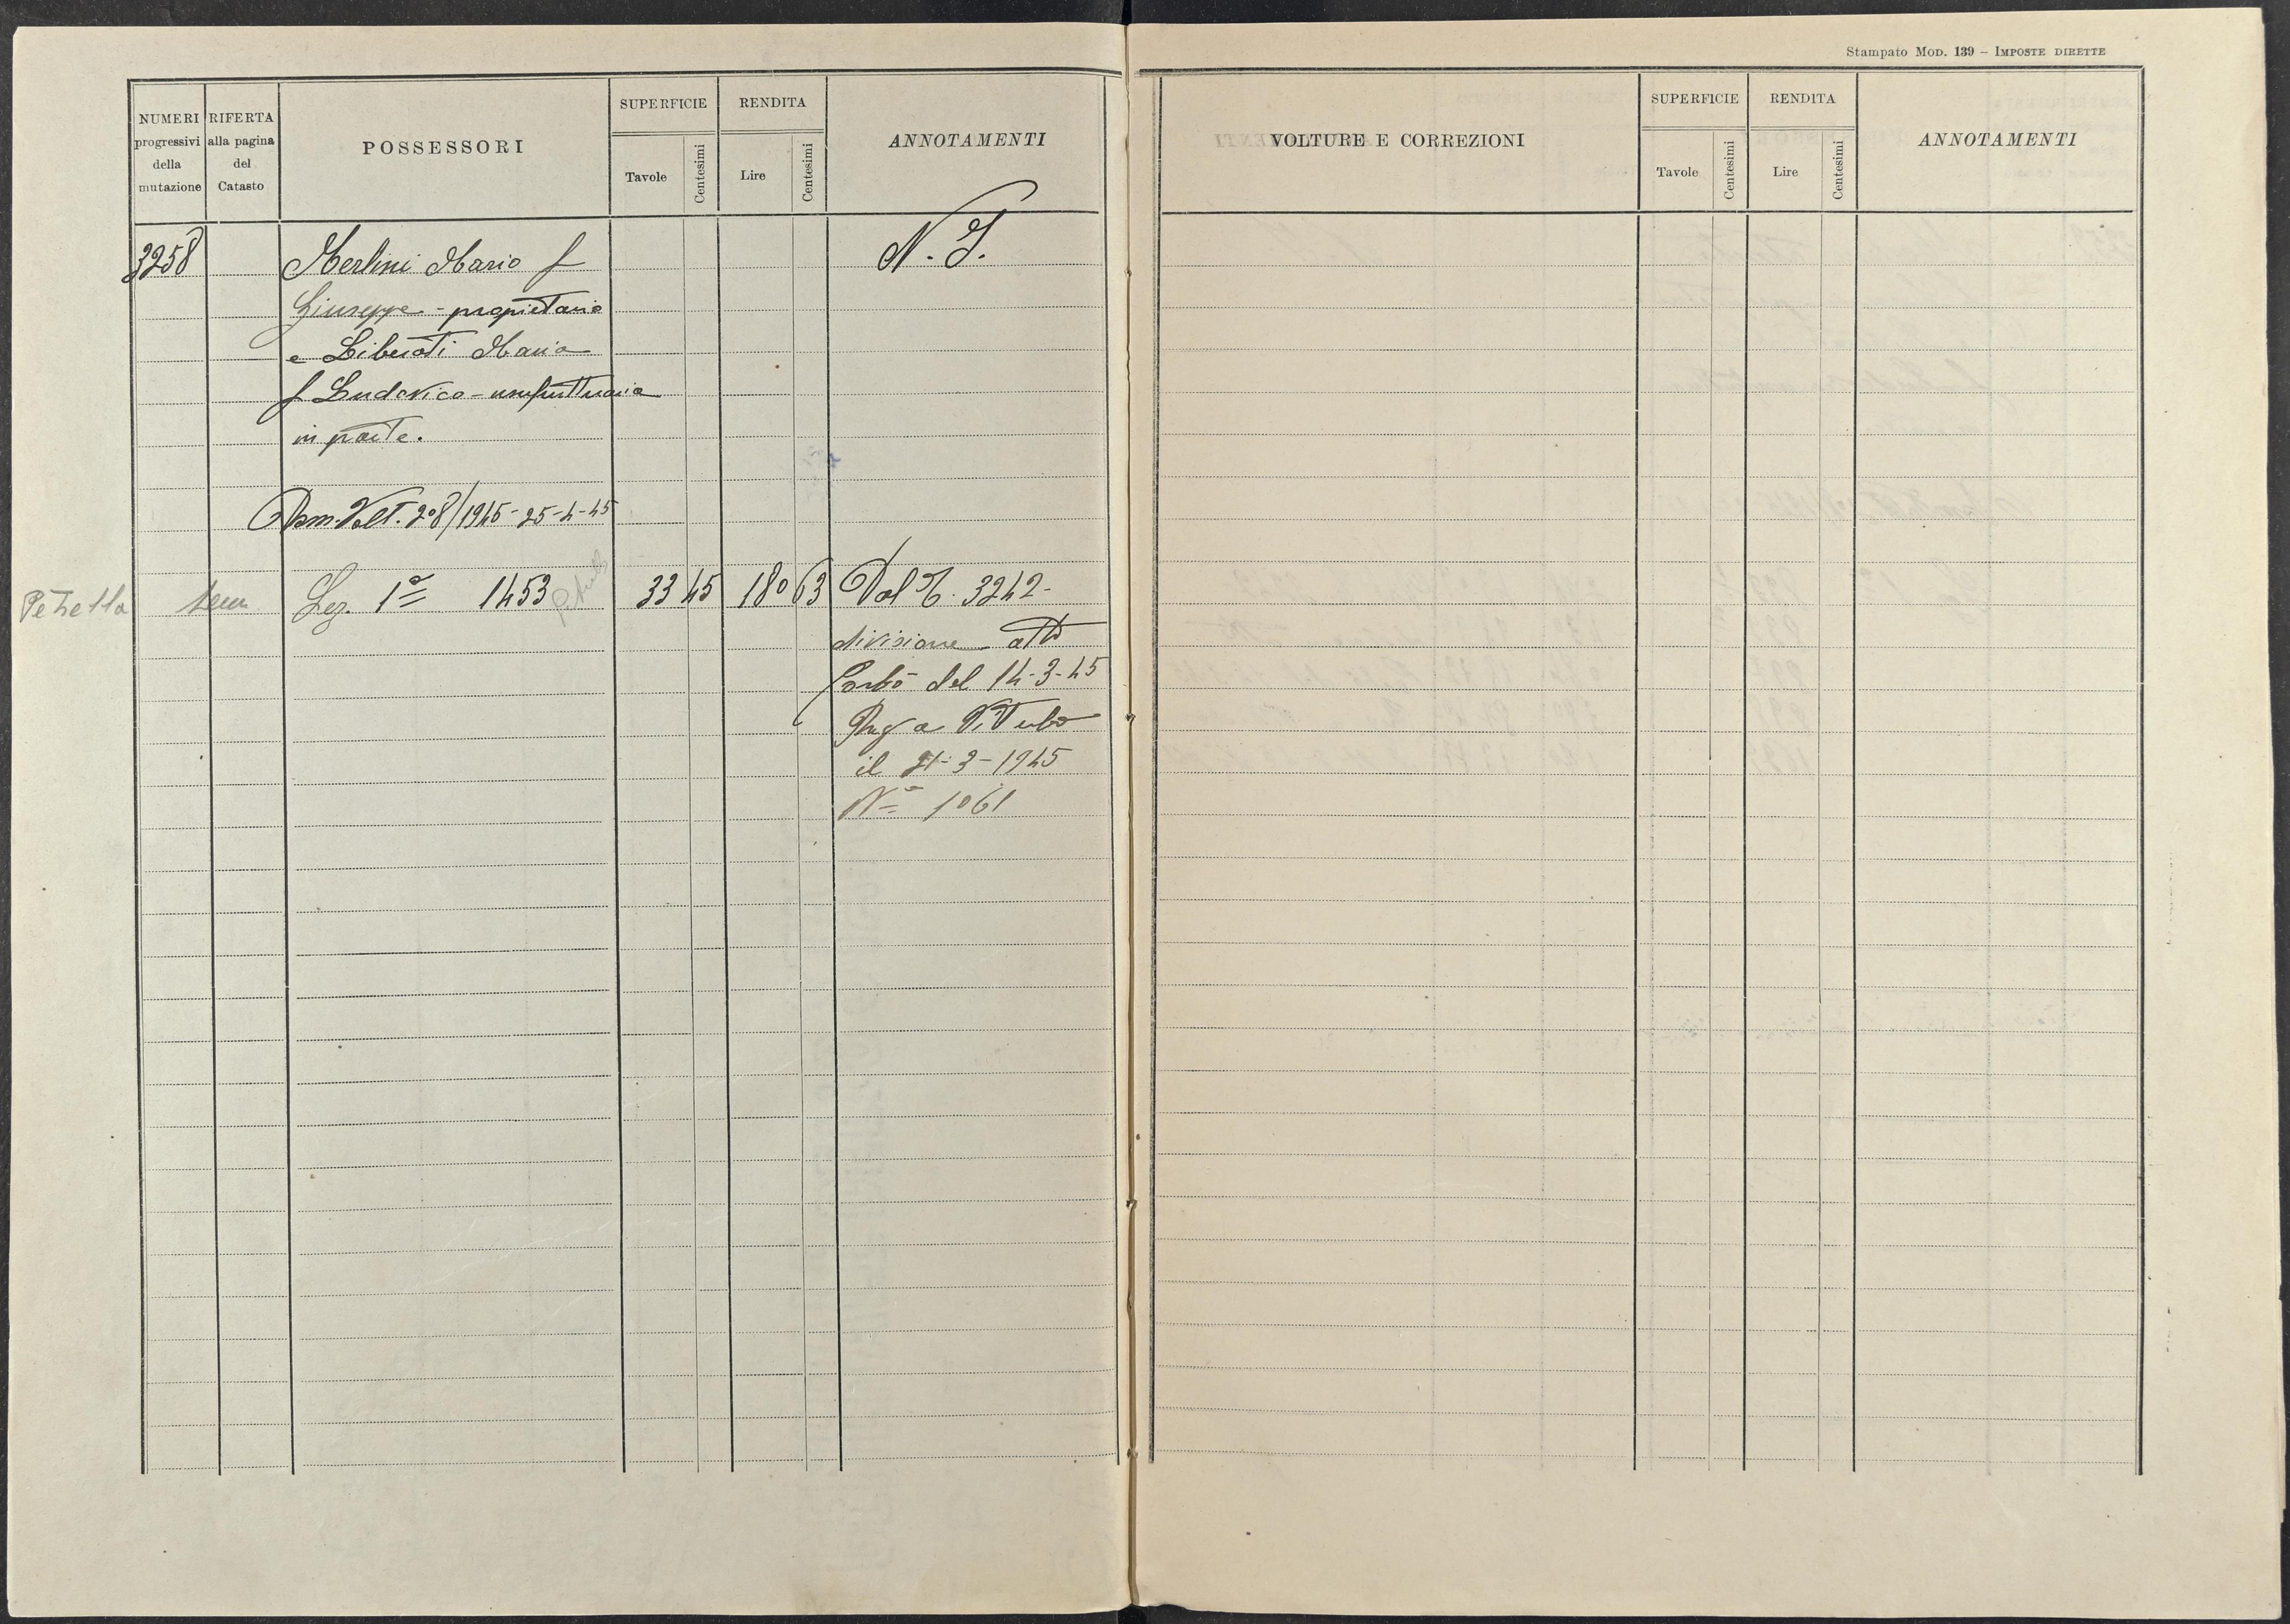 Stampato MOD. 139 – IMPOSTE DIRETTE
NUMERI progressivi della mutazione
RIFERTA alla pagina del Catasto
POSSESSORI
SUPERFICIE
Tavole
Centesimi
RENDITA
Lire
Centesimi
ANNOTAMENTI
3258 Merlini Mario f
Giuseppe - proprietario
e Liberati Maria
f Ludovico - usufruttuaria
in parte.
N.
Volt. 208/1945 - 25-4-45
Petrella Sem Sez. 1ª 1453 33 45 180 63 Dal 3242 -
divisione atto
del 14-3-45
a Viterbo
il 21-3-1945
Nº 1061
VOLTURE E CORREZIONI
SUPERFICIE
Tavole
Centesimi
RENDITA
Lire
Centesimi
ANNOTAMENTI